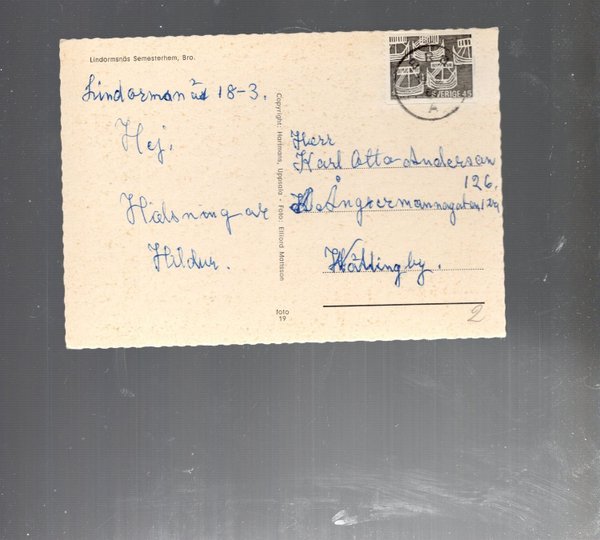 Lindormsnäs Semesterhem, Bro.
Lindormsnäs 18-3.
Hej.
Hälsningar
Hildur.
Copyright: Hartmans, Uppsala Foto: Elfiord Mattsson
foto
19
SVERIGE 45
BRO
A
Herr
Karl Otto Anderson
126.
Ångermannagatan
Vällingby.
2